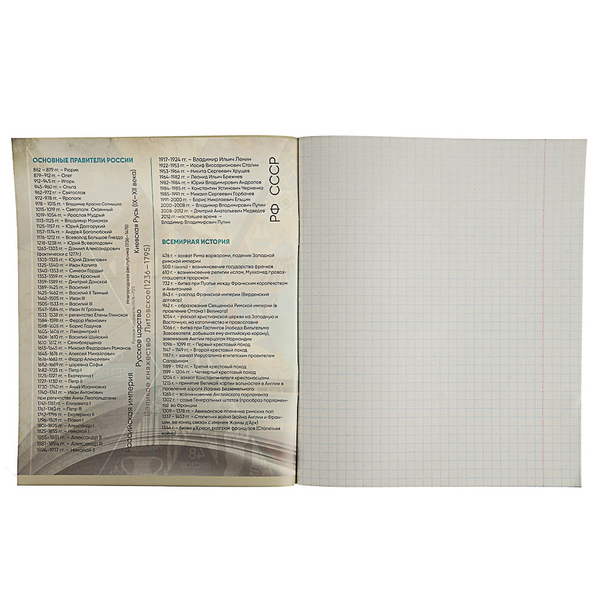 ОСНОВНЫЕ ПРАВИТЕЛИ РОССИИ
862 – 879 гг. – Рюрик
879–912 гг. – Олег
912–945 гг. – Игорь
945–960 гг. – Ольга
962–972 гг. – Святослав
972–978 гг. – Ярополк
978 – 1015 гг. – Владимир Красно Солнышко
1015–1019 гг. – Святополк Окаянный
1019–1054 гг. – Ярослав Мудрый
1113–1125 гг. – Владимир Мономах
1125–1157 гг. – Юрий Долгорукий
1157–1174 гг. – Андрей Боголюбский
1176–1212 гг. – Всеволод Большое Гнездо
1218–1238 гг. – Юрий Всеволодович
1263–1303 гг. – Даниил Александрович
(фактически с 1277г.)
1303–1325 гг. – Юрий Данилович
1325–1340 гг. – Иван Калита
1340–1353 гг. – Симеон Гордый
1353–1359 гг. – Иван Красный
1359–1389 гг. – Дмитрий Донской
1389–1425 гг. – Василий I
1425–1462 гг. – Василий II Темный
1462–1505 гг. – Иван III
1505–1533 гг. – Василий III
1547–1584 гг. – Иван IV Грозный
1533–1538 гг. – регентство Елены Глинской
1584–1598 гг. – Федор Иванович
1598–1605 гг. – Борис Годунов
1605–1606 гг. – Лжедмитрий I
1606–1610 гг. – Василий Шуйский
1610–1612 гг. – Семибоярщина
1613–1645 гг. – Михаил Федорович Романов
1645–1676 гг. – Алексей Михайлович
1676–1682 гг. – Федор Алексеевич
1682–1689 гг. – царевна Софья
1682–1725 гг. – Петр I
1725–1727 гг. – Екатерина I
1727–1730 гг. – Петр II
1730–1740 гг. – Анна Иоанновна
1740–1741 гг. – Иван Антонович
при регентстве Анны Леопольдовны
1741–1761 гг. – Елизавета I
1761–1762 гг. – Петр III
1762–1796 гг. – Екатерина II
1796–1801 гг. – Павел I
1801–1825 гг. – Александр I
1825–1855 гг. – Николай I
1855–1881 гг. – Александр II
1881–1894 гг. – Александр III
1894–1917 гг. – Николай II
Киевская Русь (IX–XII века)
Русское царство
Российская империя
Великое княжество Литовское(1236–1795)
1917–1924 гг. – Владимир Ильич Ленин
1922–1953 гг. – Иосиф Виссарионович Сталин
1953–1964 гг. – Никита Сергеевич Хрущев
1964–1982 гг. – Леонид Ильич Брежнев
1982–1984 гг. – Юрий Владимирович Андропов
1984–1985 гг. – Константин Устинович Черненко
1985–1991 гг. – Михаил Сергеевич Горбачев
1991–2000 гг. – Борис Николаевич Ельцин
2000–2008 гг. – Владимир Владимирович Путин
2008–2012 гг. – Дмитрий Анатольевич Медведев
2012 гг.–настоящее время –
Владимир Владимирович Путин
РФ СССР
ВСЕМИРНАЯ ИСТОРИЯ
476 г. – захват Рима варварами, падение Западной
римской империи
500 г.(около) – возникновение государства франков
610 г. – возникновение религии ислам, Мухаммад провоз-
глашается пророком
732 г. – битва при Пуатье между Франкским королевством
и Аквитанией
843 г. – распад Франкской империи (Верденский
договор)
962 г. – образование Священной Римской империи (в
правление Оттона I Великого)
1054 г. – раскол христианской церкви на Западную и
Восточную, на католичество и православие
1066 г. – битва при Гастингсе (победа Вильгельма
Завоевателя, добывшая ему английскую корону),
завоевание Англии герцогом Нормандии
1096 – 1099 гг. – Первый крестовый поход
1147 – 1149 гг. – Второй крестовый поход
1187 г. – взятие Иерусалима египетским правителем
Саладином
1189 – 1192 гг. – Третий крестовый поход
1199 – 1204 гг. – Четвертый крестовый поход
1204 г. – захват Константинополя крестоносцами
1215 г. – принятие Великой хартии вольностей в Англии в
правление короля Иоанна Безземельного
1265 г. – возникновение Английского парламента
1302 г. – созыв Генеральных штатов (прообраз парламен-
та) во Франции
1309 – 1378 гг. – Авиньонское пленение римских пап
1337 – 1453 гг. – Столетняя война (война Англии и Фран-
ции, ее конец связан с именем Жанны д'Арк)
1346 г. – битва у Креси, разгром французов (Столетняя
война)